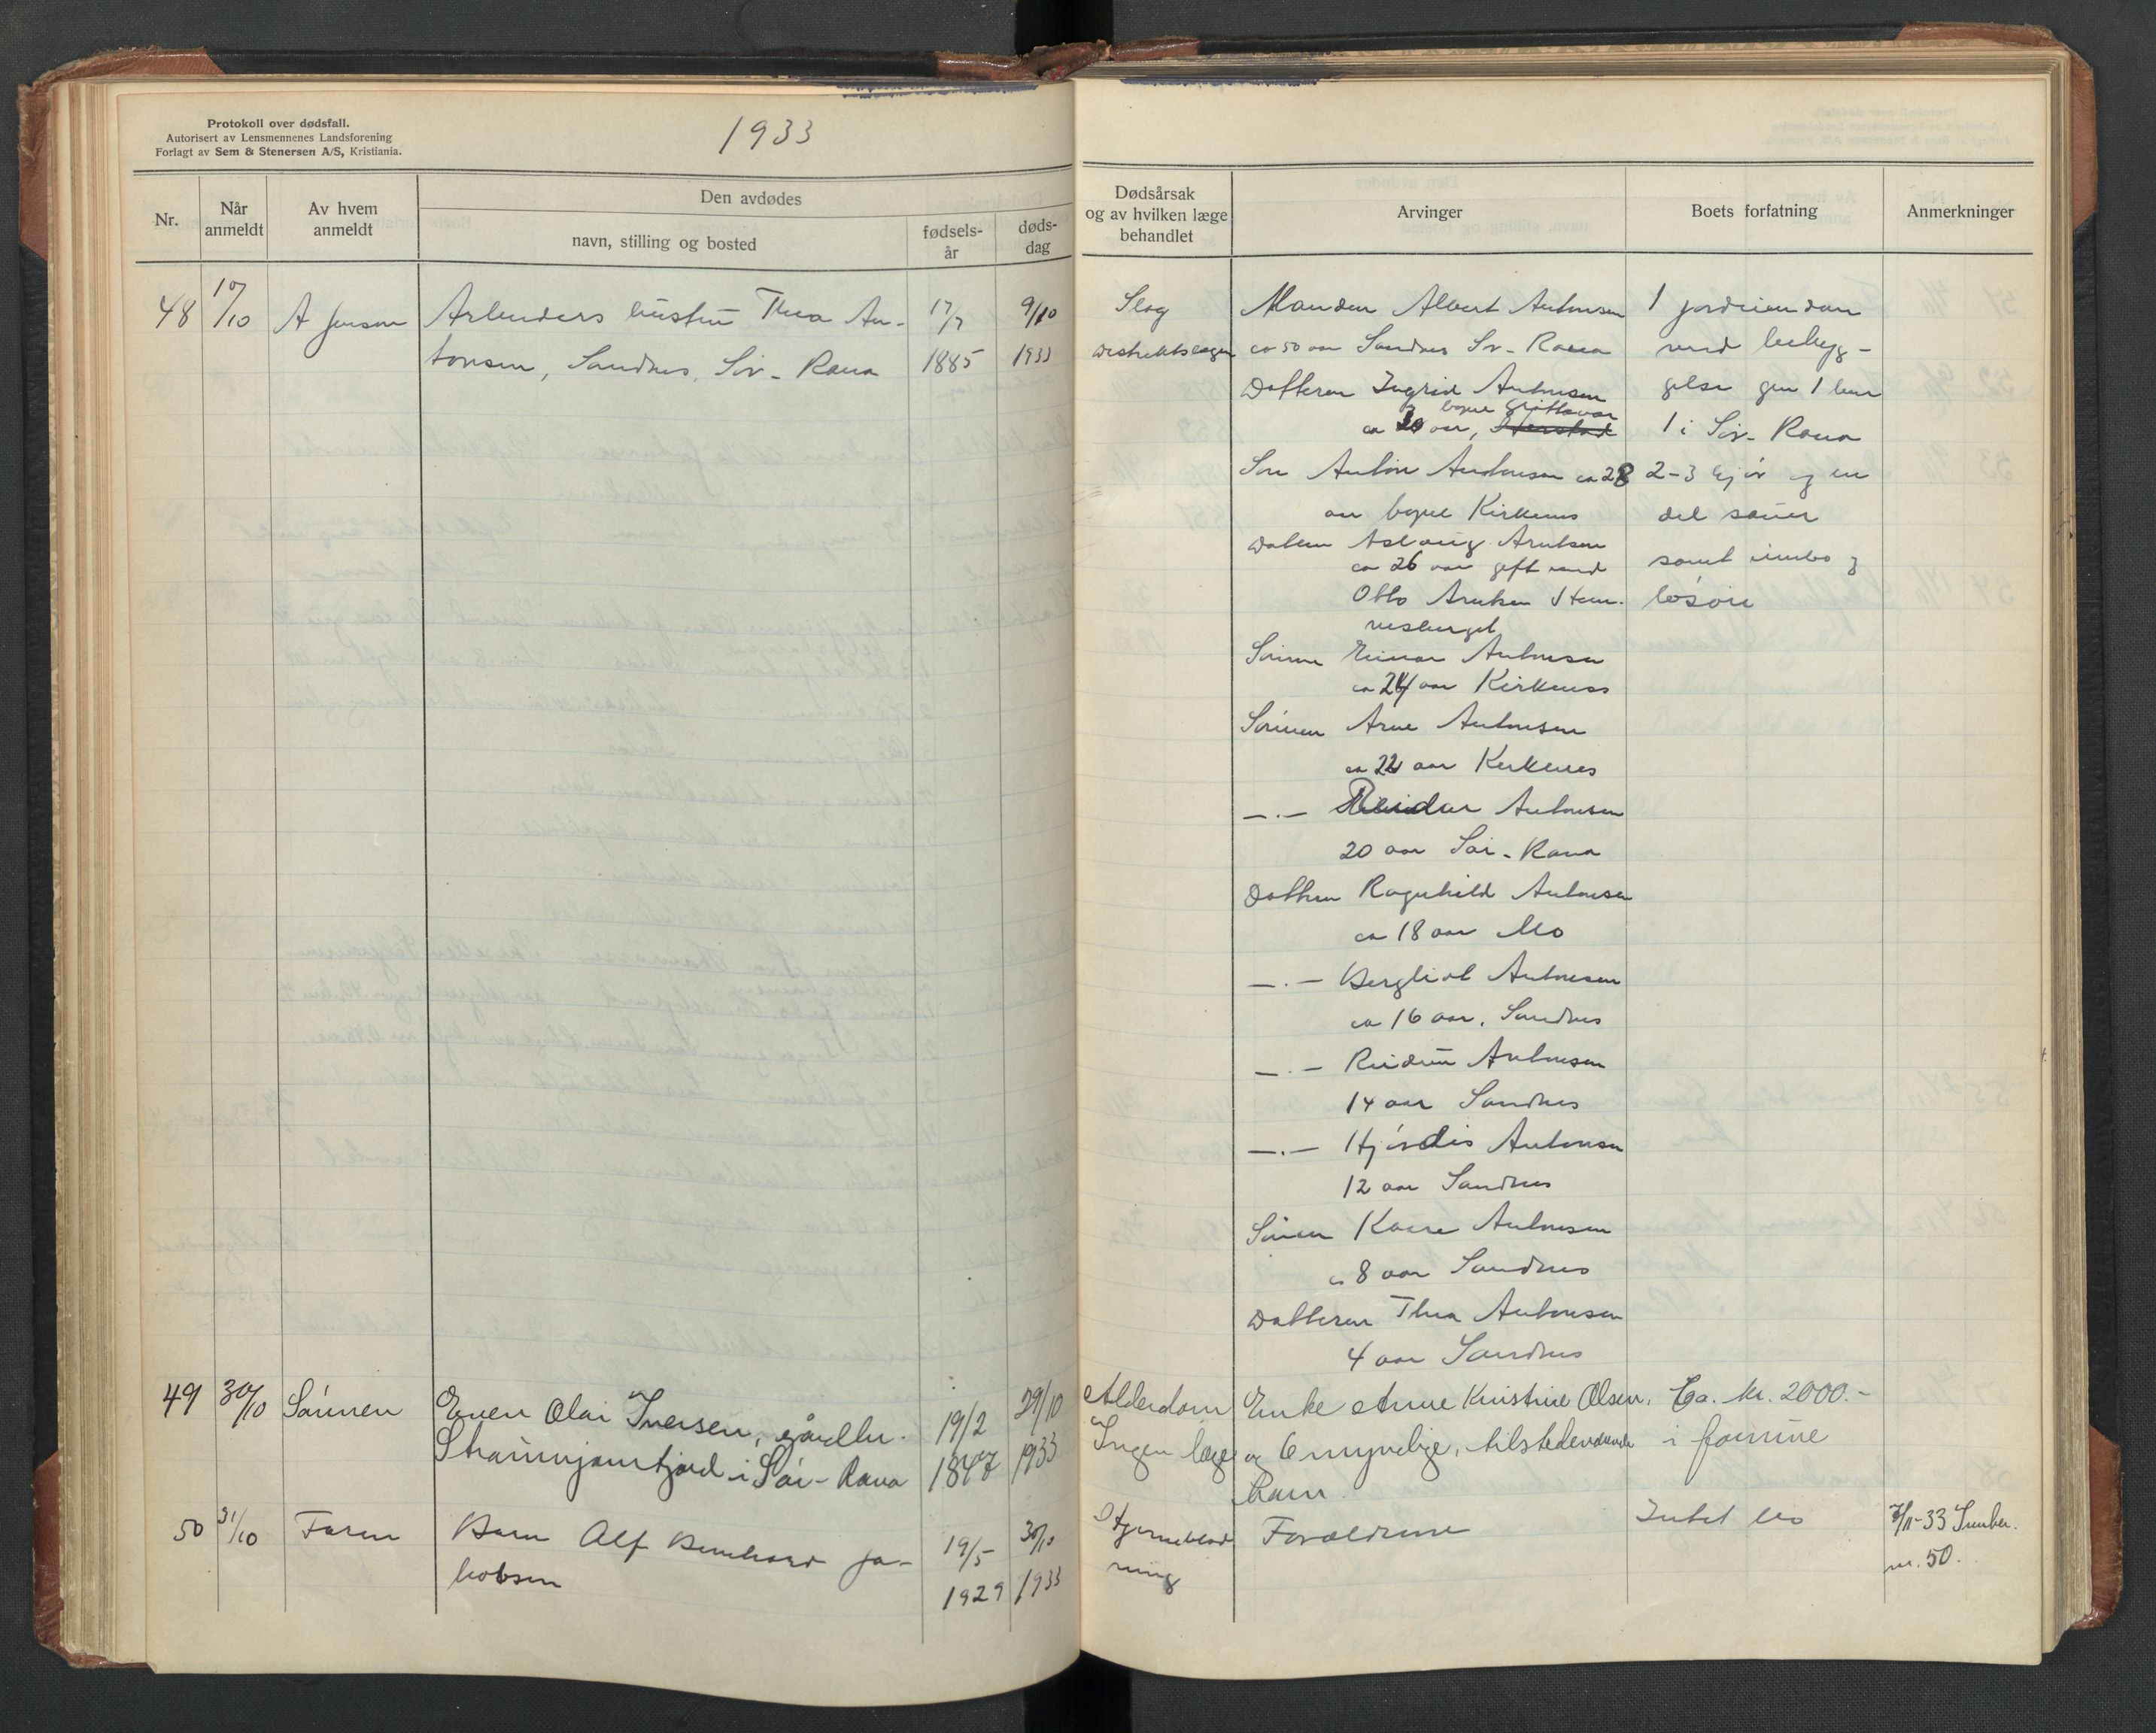 Protokoll over dødsfall.
Autorisert av Lensmennenes Landsforening
Forlagt av Sem & Stenersen A/S, Kristiania.
1933
Nr.
Når anmeldt
Av hvem anmeldt
Den avdødes
navn, stilling og bosted
fødsels-år
døds-dag
Dødsårsak
og av hvilken læge
behandlet
Arvinger
Boets forfatning
Anmerkninger
48
10/10
A Jenson
Arbeiders hustru Thea An-
tonsen, Sandnes, Sør-Rana
17/7
1885
9/10
1933
Slag
Distriktslægen
Manden Albert Antonsen
ca 50 aar Sandnes Sr-Rana
Datteren Ingrid Antonsen
bopæl
ca 30 aar,
Søn Anton Antonsen ca 28
aar bopæl Kirkenes
Datteren Aslaug Arntsen
ca 26 aar gift med
Otto Arntsen Hem-
nesberget
Sønnen Einar Antonsen
ca 24 aar Kirkenes
Sønnen Arne Antonsen
ca 22 aar Kirkenes
—.— Reidar Antonsen
20 aar Sør-Rana
Datteren Ragnhild Antonsen
ca 18 aar Mo
—.— Bergliot Antonsen
ca 16 aar, Sandnes
—.— Reidun Antonsen
14 aar Sandnes
—.— Hjørdis Antonsen
12 aar Sandnes
Sønnen Kaare Antonsen
ca 8 aar Sandnes
Datteren Thea Antonsen
4 aar Sandnes
1 jordeiendom
med bebyg-
gelse gnr 1 bnr
1 i Sør-Rana
2-3 kjør og en
del sauer
samt innbo og
løsøre
49
30/10
Sønnen
Even Olai Iversen, gårdbr.
Straumfjord i Sør-Rana
19/2
1847
29/10
1933
Alderdom
Ingen læge
Enke Anne Kristine Olsen,
og 6 myndige, tilstedeværende
barn.
Ca. kr. 2000.-
i formue
50
31/10
Faren
Barn Alf Bernhard Ja-
kobsen
19/5
1929
30/10
1933
Hjerneblød
ning
Forældrene
Intet bo
7/11-33
nr. 50.